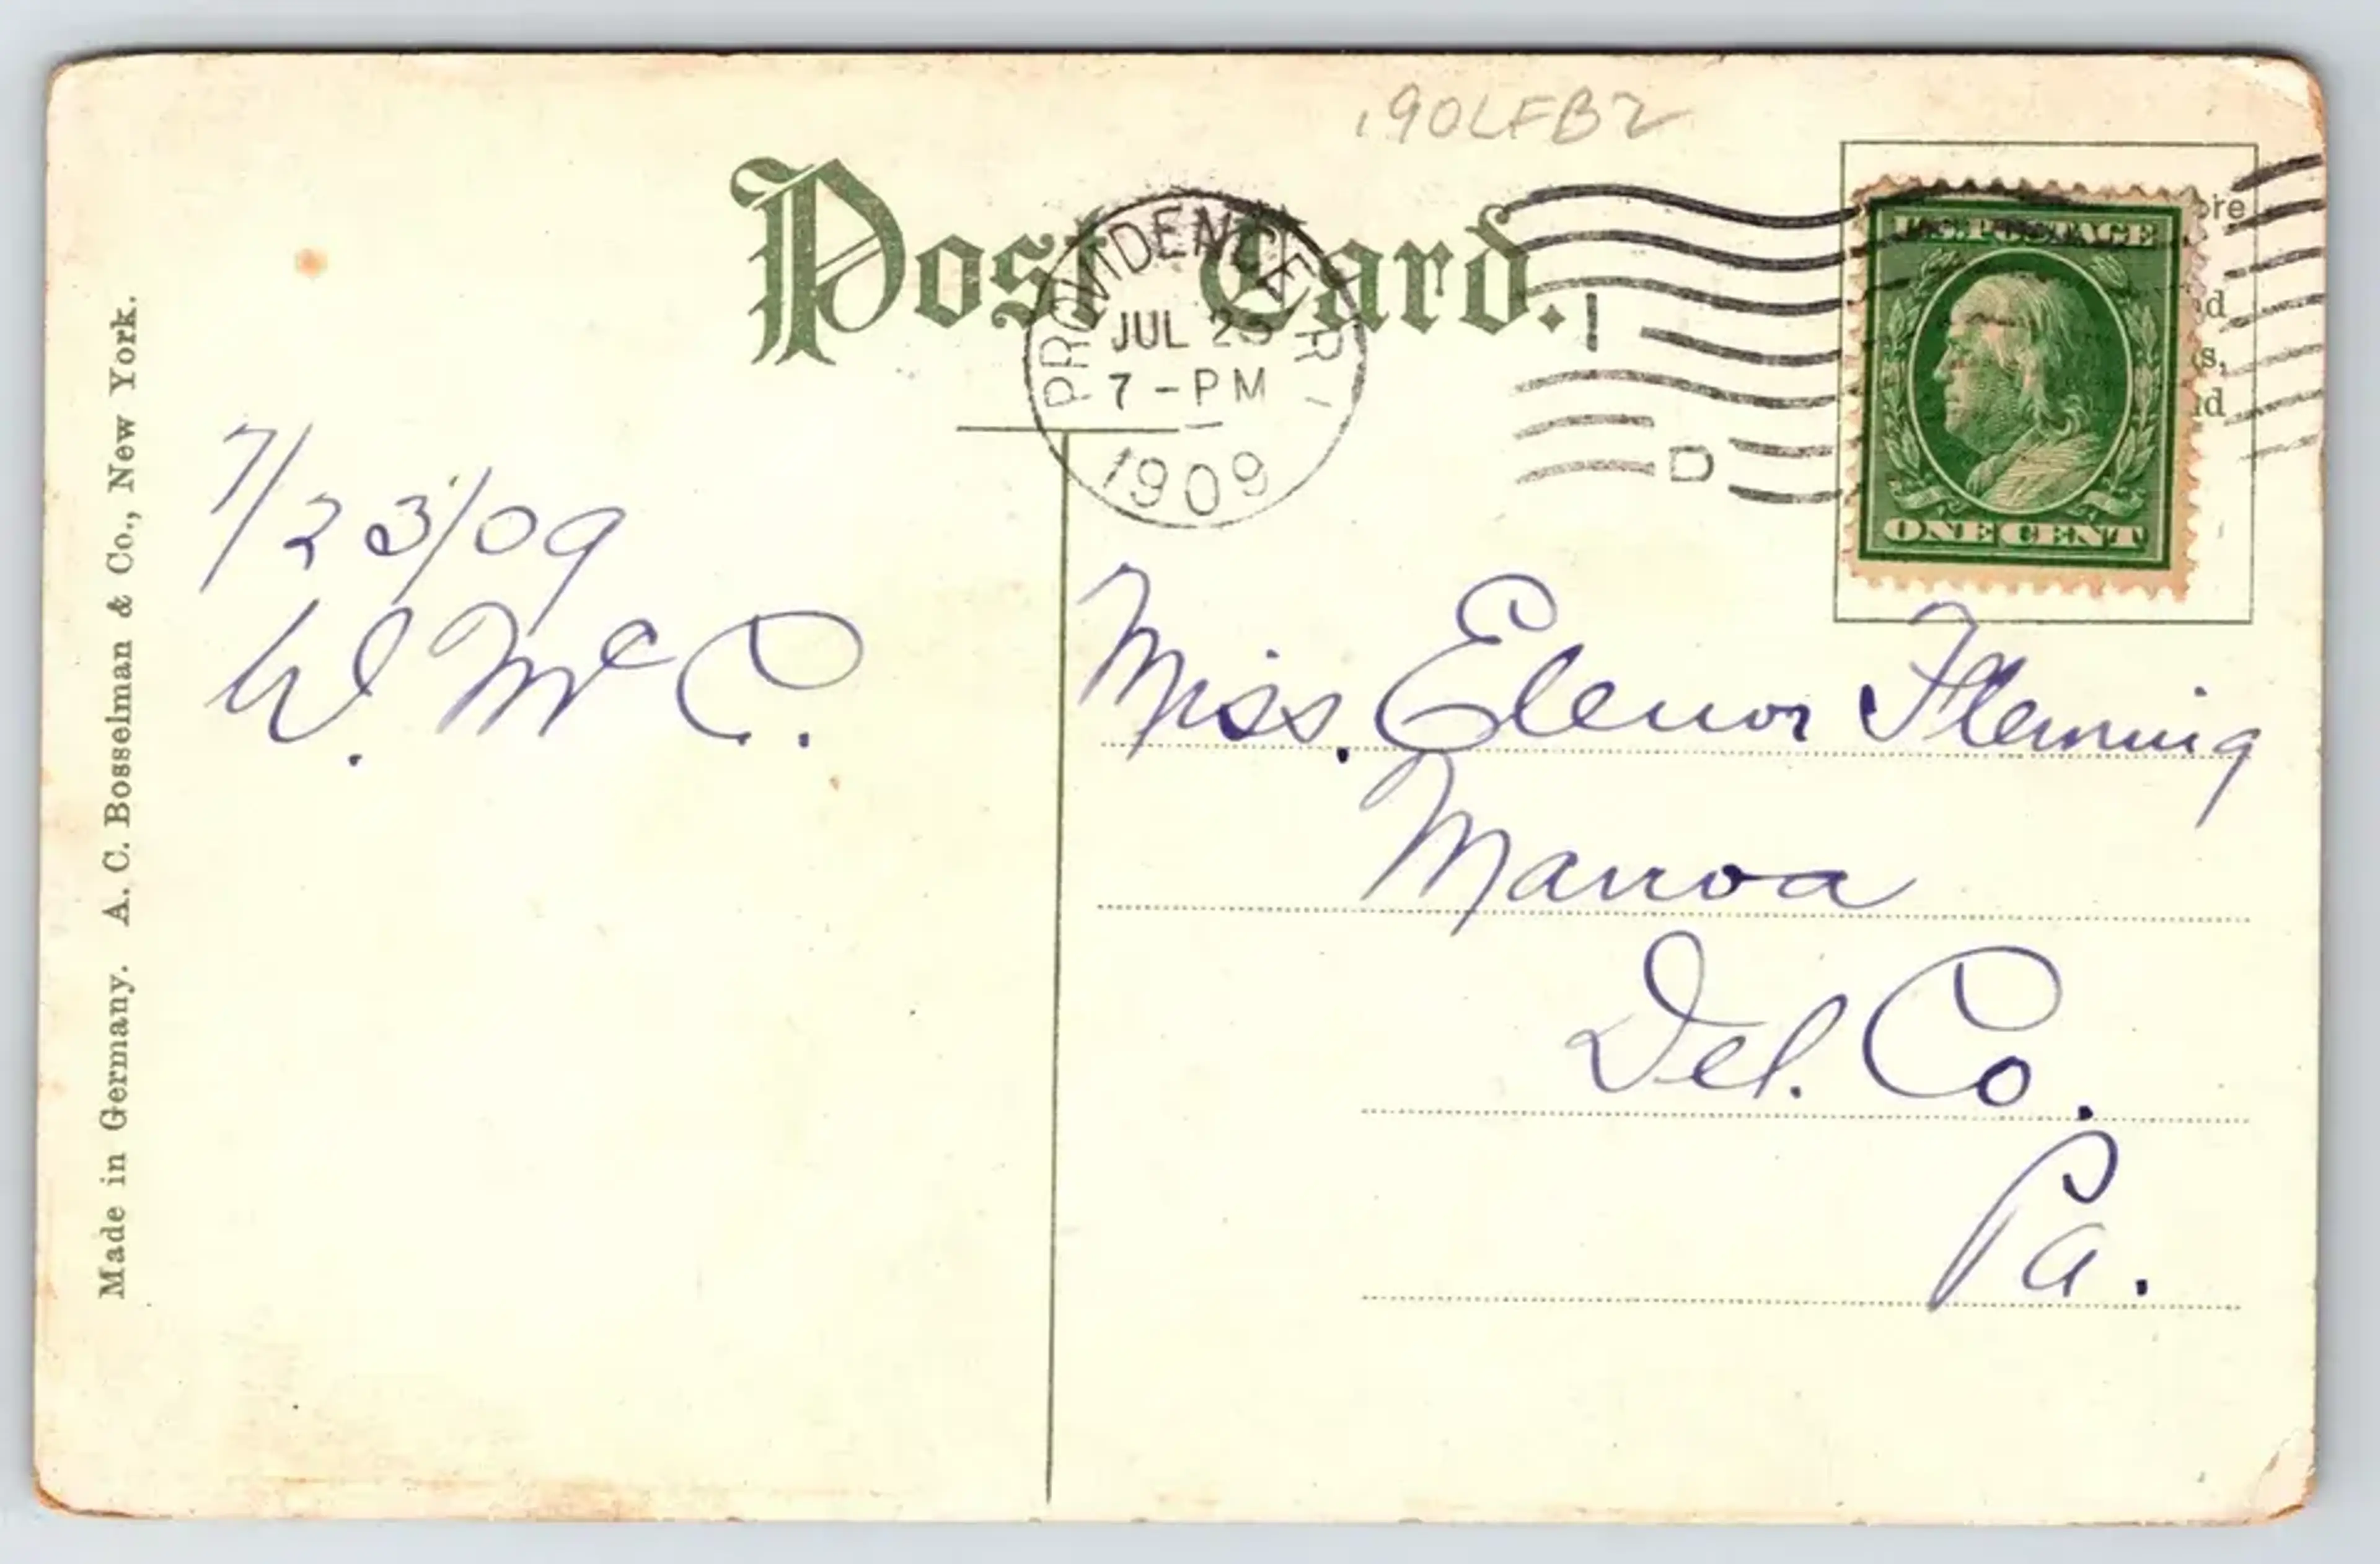 190LFB2
Post Card.
PROVIDENCE R I
JUL 23
7 - PM
1909
I
D
U.S. POSTAGE
ONE CENT
7/23/09
W. Mc C.
Miss. Elenor Fleming
Manoa
Del. Co.
Pa.
Made in Germany. A. C. Bosselman & Co., New York.